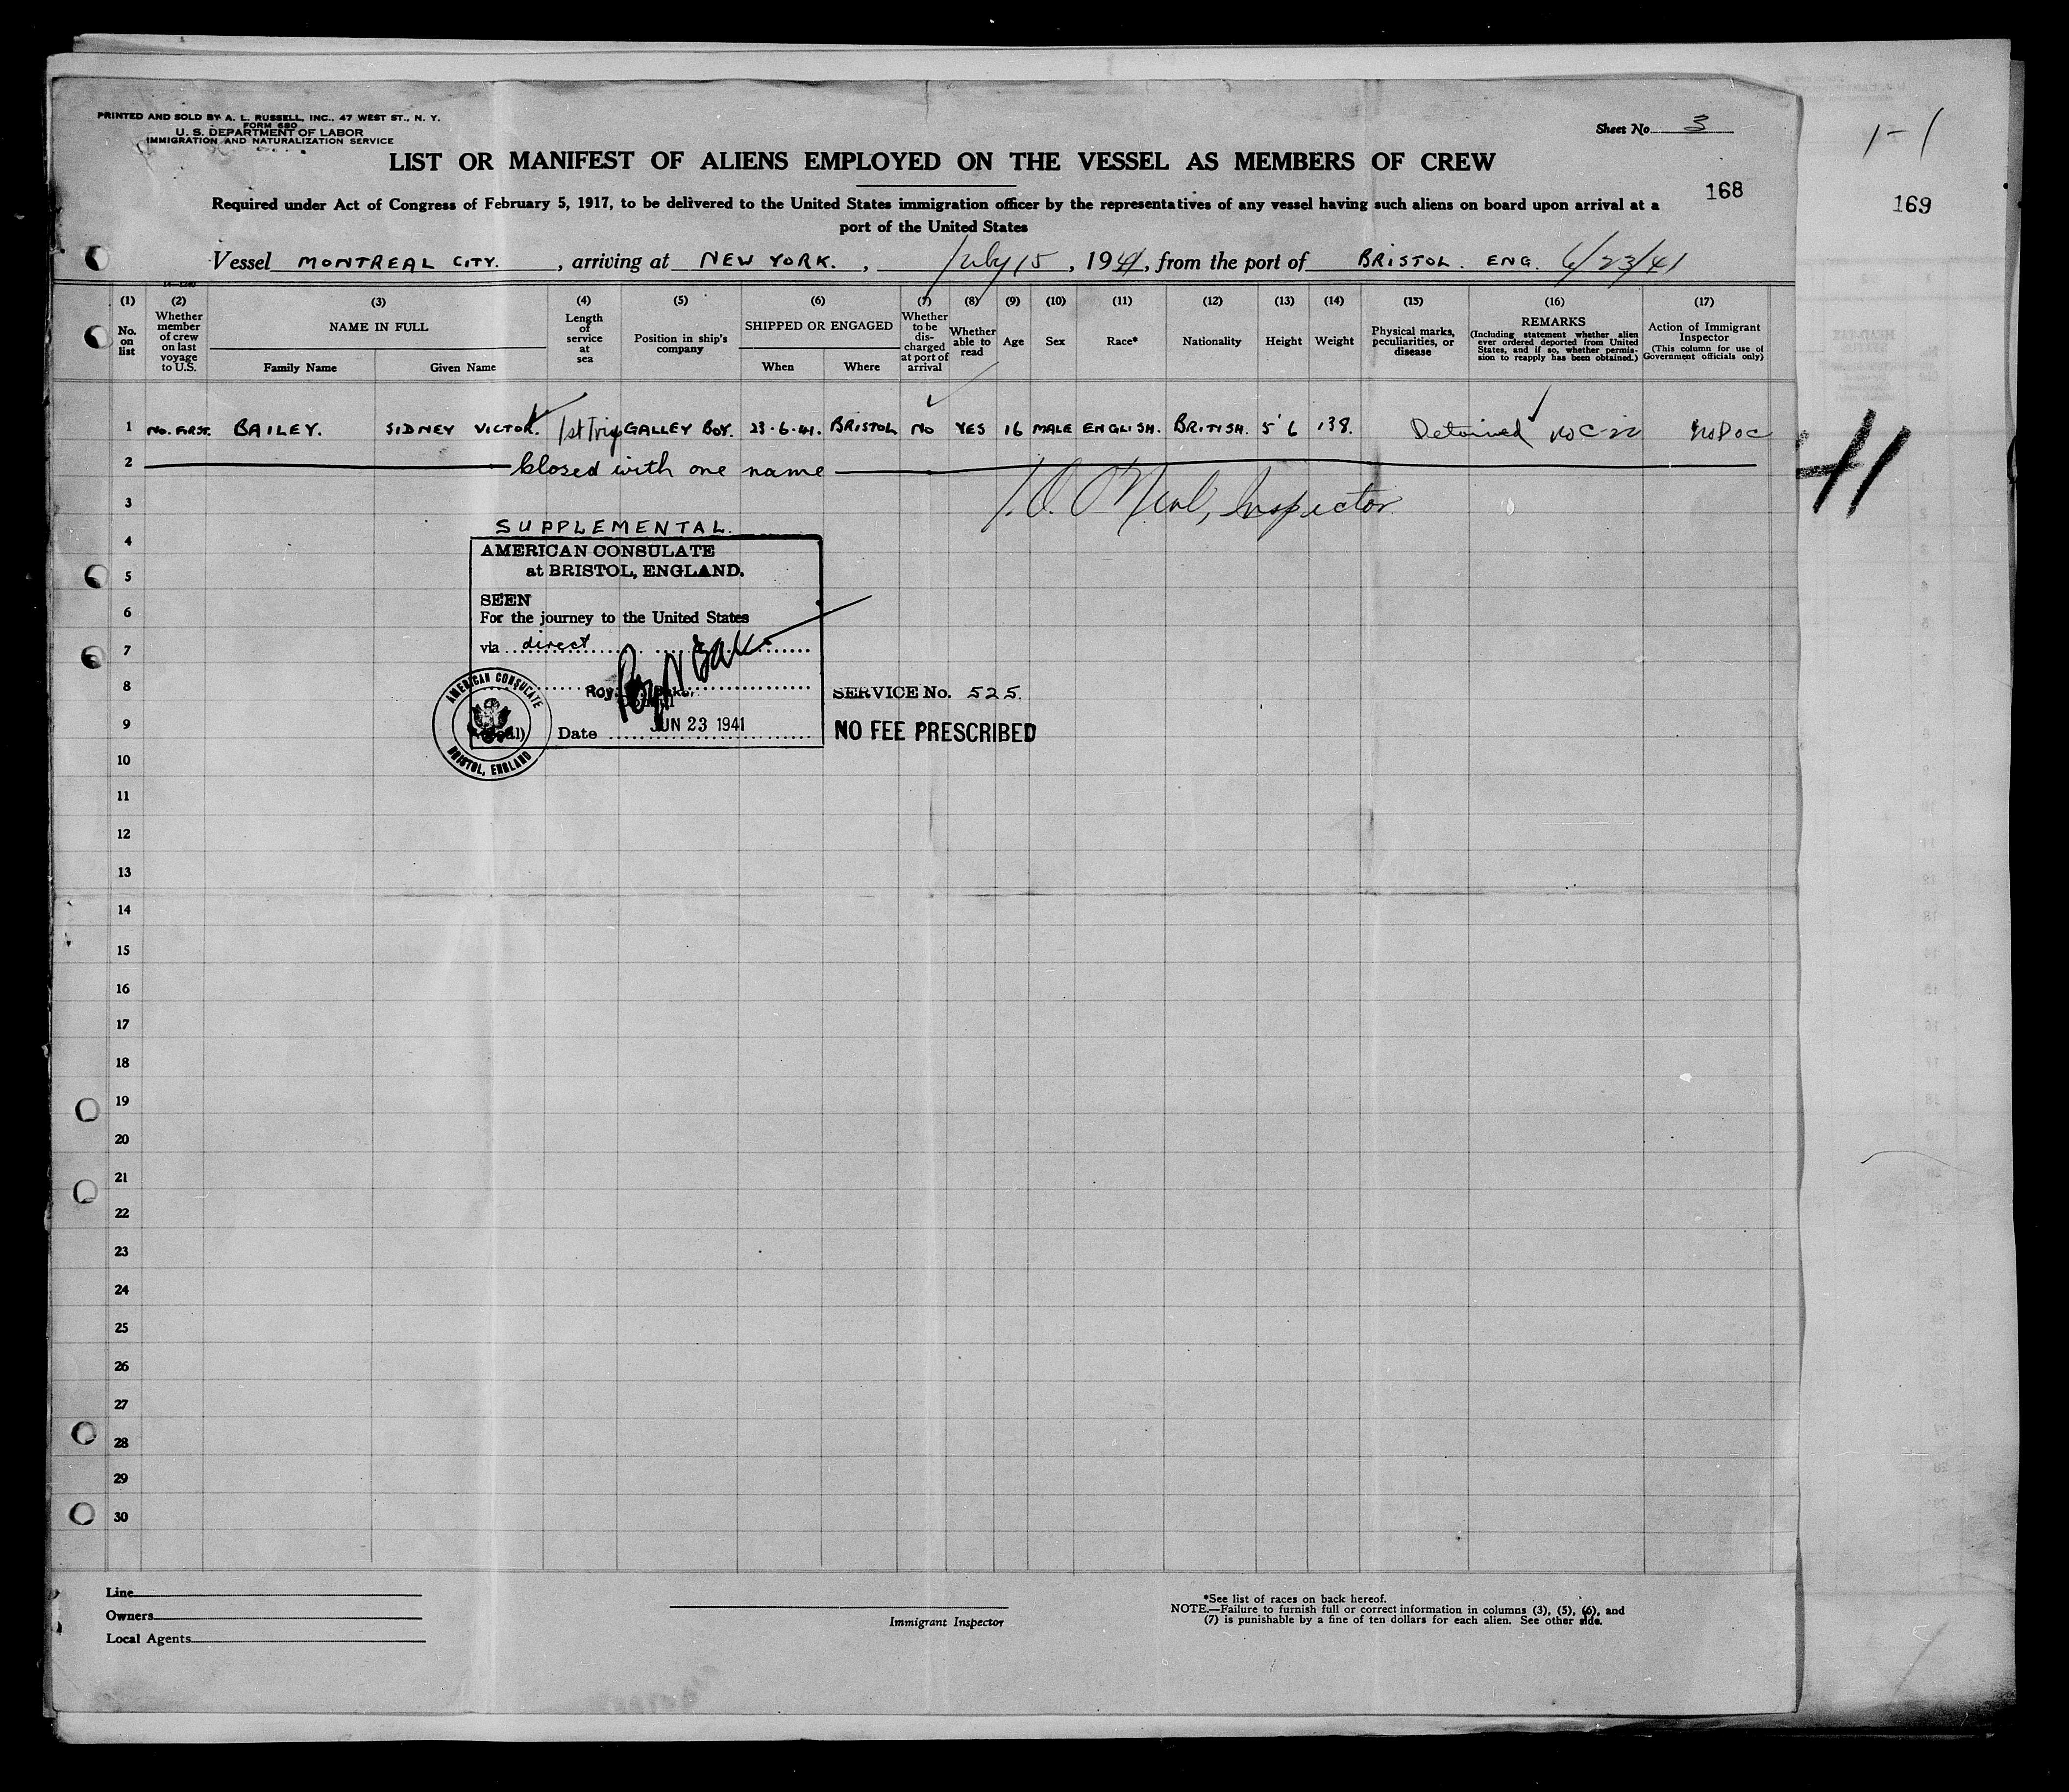 PRINTED AND SOLD BY A. L. RUSSELL, INC., 47 WEST ST., N. Y.
FORM 680
U. S. DEPARTMENT OF LABOR
IMMIGRATION AND NATURALIZATION SERVICE
Sheet No. 3
1-1
LIST OR MANIFEST OF ALIENS EMPLOYED ON THE VESSEL AS MEMBERS OF CREW
168
169
Required under Act of Congress of February 5, 1917, to be delivered to the United States immigration officer by the representatives of any vessel having such aliens on board upon arrival at a
port of the United States
Vessel MONTREAL CITY. , arriving at NEW YORK. , July 15 , 1941, from the port of BRISTOL. ENG. 6/23/41
(1) (2) (3) (4) (5) (6) (7) (8) (9) (10) (11) (12) (13) (14) (15) (16) (17)
No. on list
Whether member of crew on last voyage to U.S.
NAME IN FULL
Family Name
Given Name
Length of service at sea
Position in ship's company
SHIPPED OR ENGAGED
When
Where
Whether to be dis-charged at port of arrival
Whether able to read
Age
Sex
Race*
Nationality
Height
Weight
Physical marks, peculiarities, or disease
REMARKS
(Including statement whether alien ever ordered deported from United States, and if so, whether permis-sion to reapply has been obtained.)
Action of Immigrant Inspector
(This column for use of Government officials only)
1 No. FIRST. BAILEY. SIDNEY VICTOR. 1st Trip GALLEY BOY. 23-6-41. BRISTOL NO YES 16 MALE ENGLISH. BRITISH. 5'6 138. Detained No Doc
2 Closed with one name
41
3 O'Neal, Inspector
SUPPLEMENTAL.
4
AMERICAN CONSULATE
5 at BRISTOL, ENGLAND.
SEEN
6 For the journey to the United States
7 via direct
8 Roy Baker
SERVICE No. 525.
9 (Seal) Date JUN 23 1941
NO FEE PRESCRIBED
AMERICAN CONSULATE
BRISTOL, ENGLAND
10
11
12
13
14
15
16
17
18
19
20
21
22
23
24
25
26
27
28
29
30
Line
Owners
Local Agents
Immigrant Inspector
*See list of races on back hereof.
NOTE.—Failure to furnish full or correct information in columns (3), (5), (6), and
(7) is punishable by a fine of ten dollars for each alien. See other side.